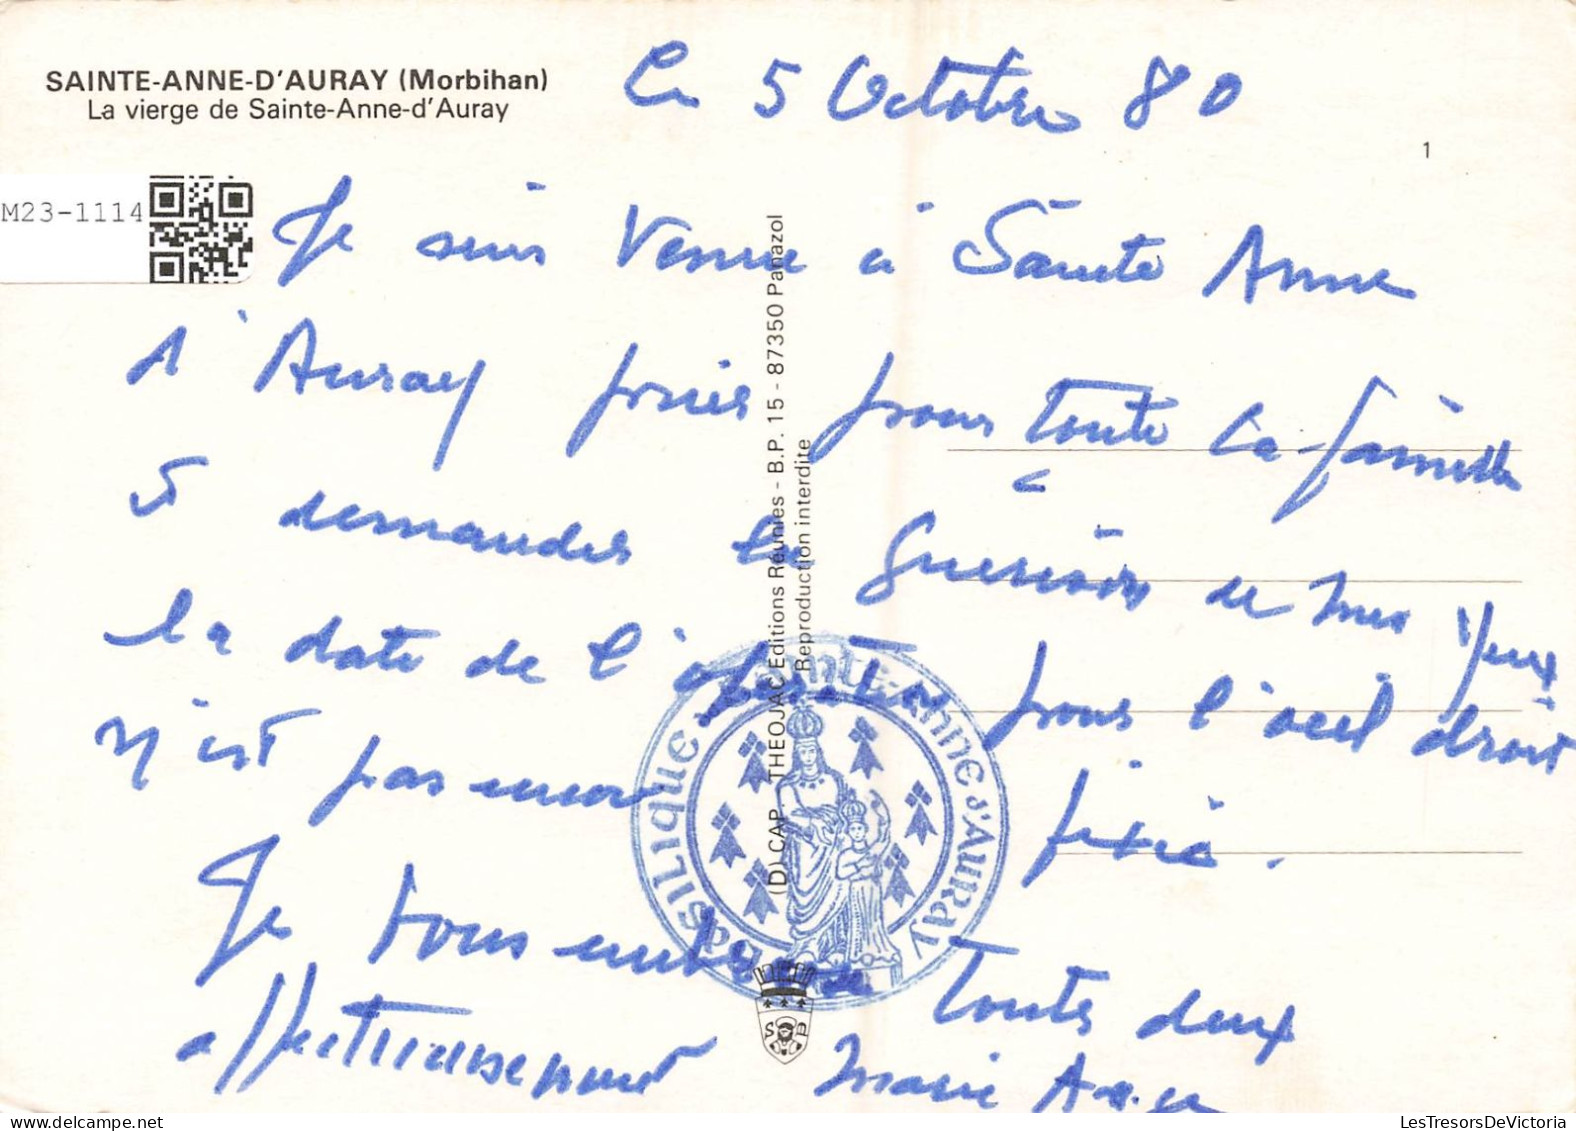 SAINTE-ANNE-D'AURAY (Morbihan)
La vierge de Sainte-Anne-d'Auray
Le 5 Octobre 80
1
M23-1114
Je suis Venue à Sainte Anne
d'Auray prier pour toute la famille
et demander la guerison de mes yeux
la date de l'opération pour l'oeil droit
n'est pas encore fixée.
Je vous embrasse toutes deux
affectueusement Marie Anne
(D) CAP THEOJAC Editions Réunies - B.P. 15 - 87350 Panazol
Reproduction interdite
Basilique Sainte-Anne d'Auray
LesTresorsDeVictoria